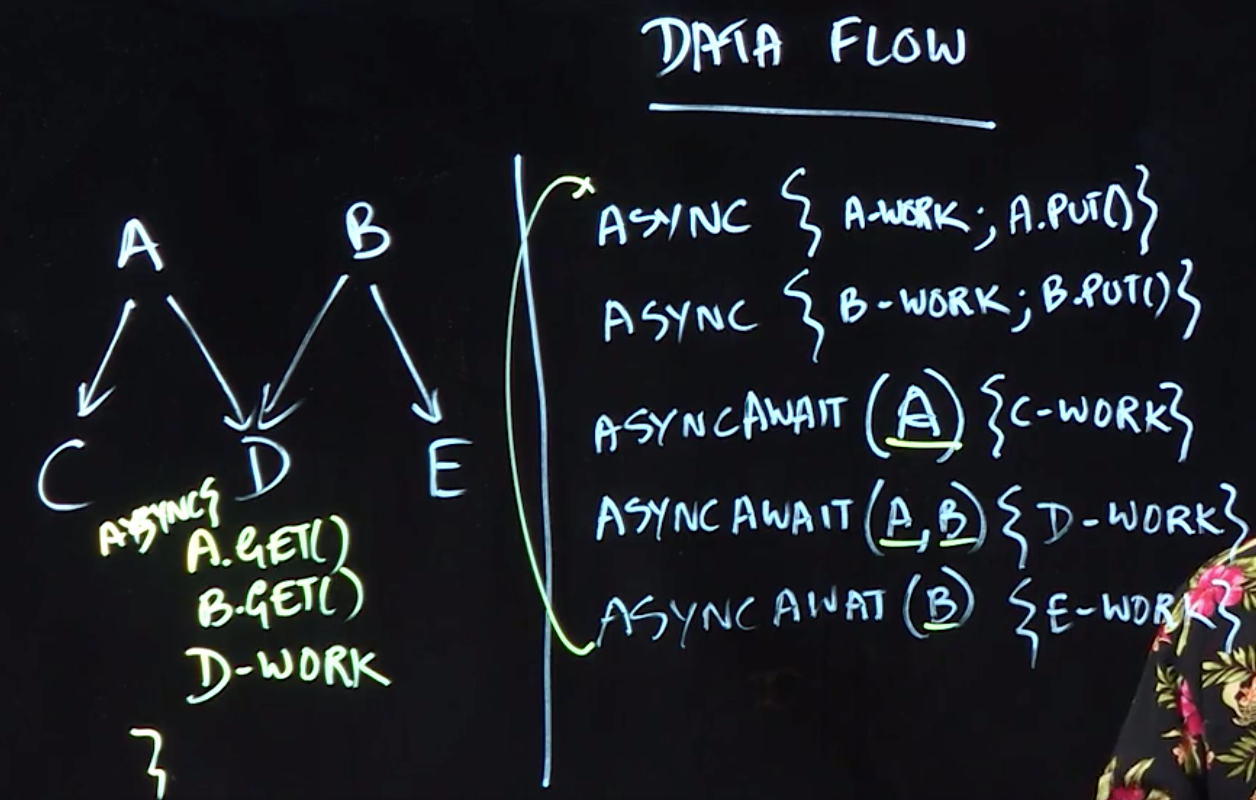 DATA FLOW
A B
C D E
ASYNC {
A.GET()
B.GET()
D-WORK
}
ASYNC { A-WORK; A.PUT() }
ASYNC { B-WORK; B.PUT() }
ASYNCAWAIT (A) {C-WORK}
ASYNCAWAIT (A, B) { D-WORK}
ASYNCAWAT (B) {E-WORK}